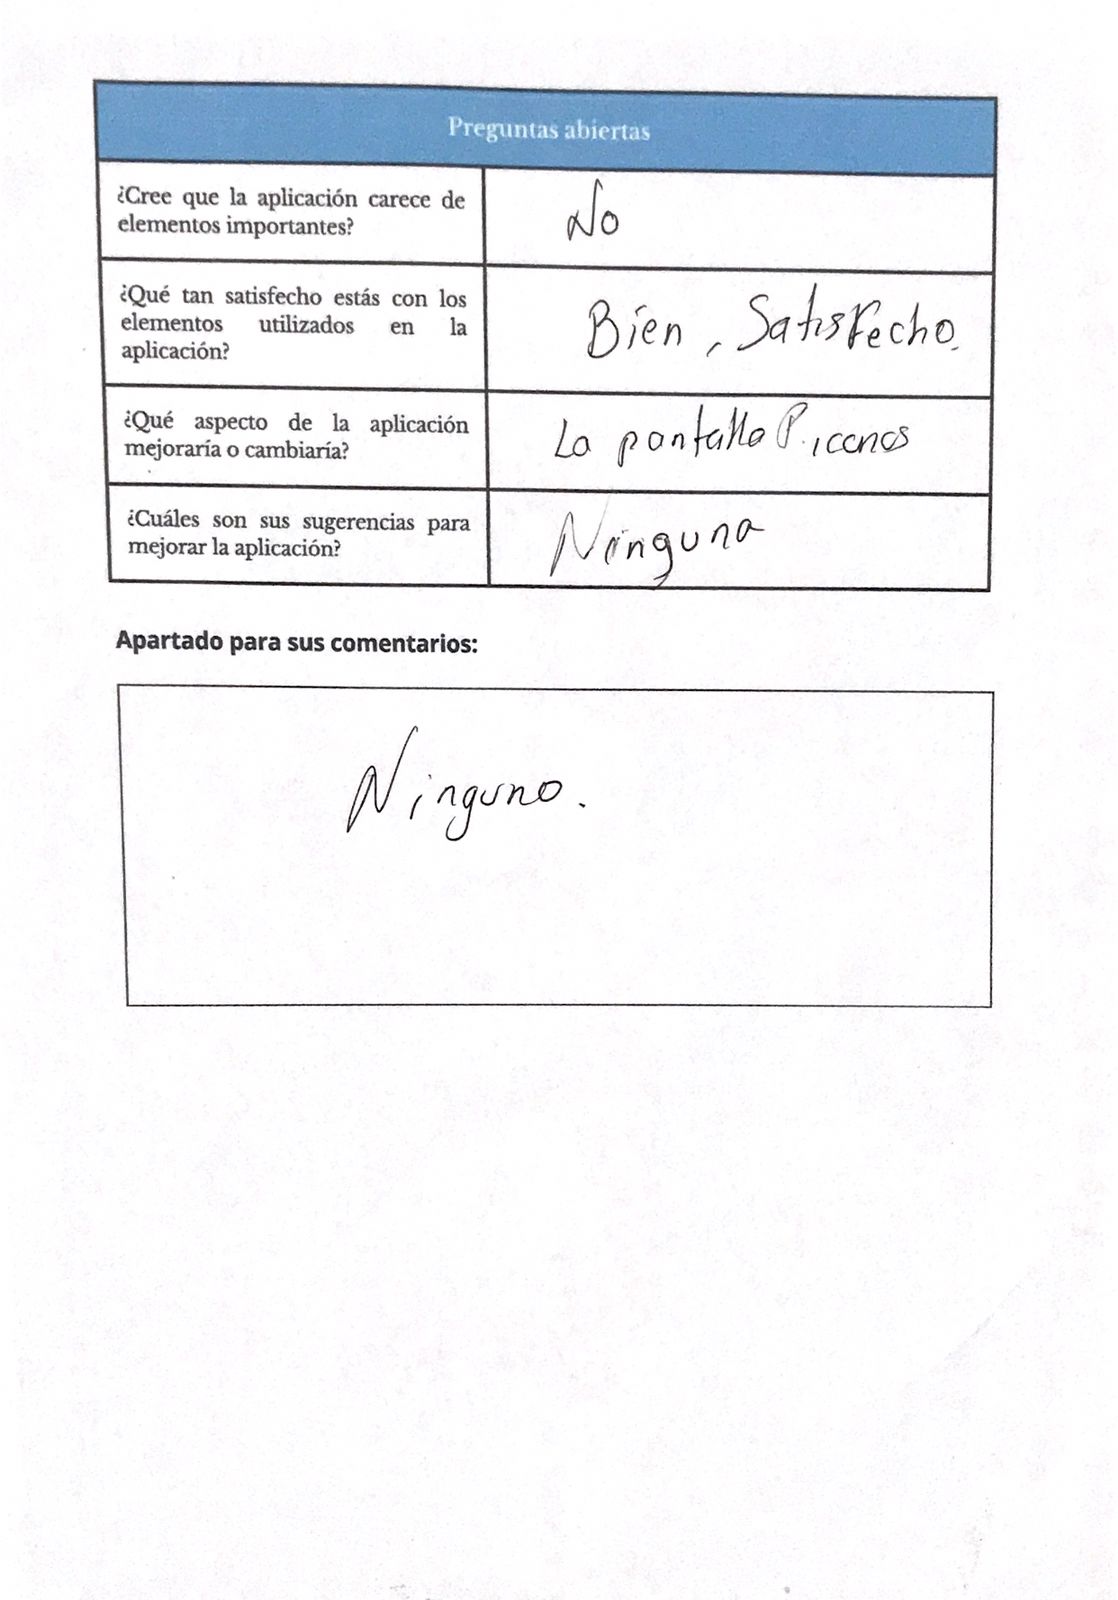 Preguntas abiertas
¿Cree que la aplicación carece de
elementos importantes?
No
¿Qué tan satisfecho estás con los
elementos utilizados en la
aplicación?
Bien, Satisfecho.
¿Qué aspecto de la aplicación
mejoraría o cambiaría?
La pantalla P. iconos
¿Cuáles son sus sugerencias para
mejorar la aplicación?
Ninguna
Apartado para sus comentarios:
Ninguno.